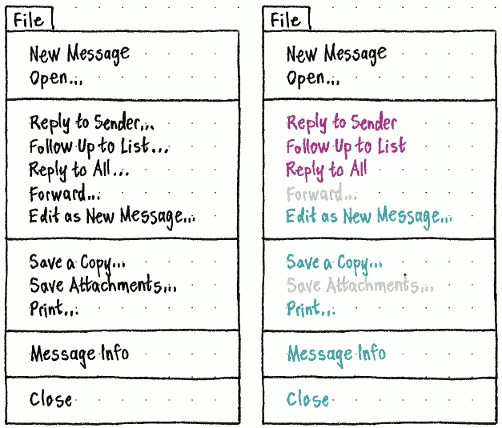 File
New Message
Open...
Reply to Sender...
Follow Up to List...
Reply to All...
Forward...
Edit as New Message...
Save a Copy...
Save Attachments...
Print...
Message Info
Close
File
New Message
Open...
Reply to Sender
Follow Up to List
Reply to All
Forward...
Edit as New Message...
Save a Copy...
Save Attachments...
Print...
Message Info
Close